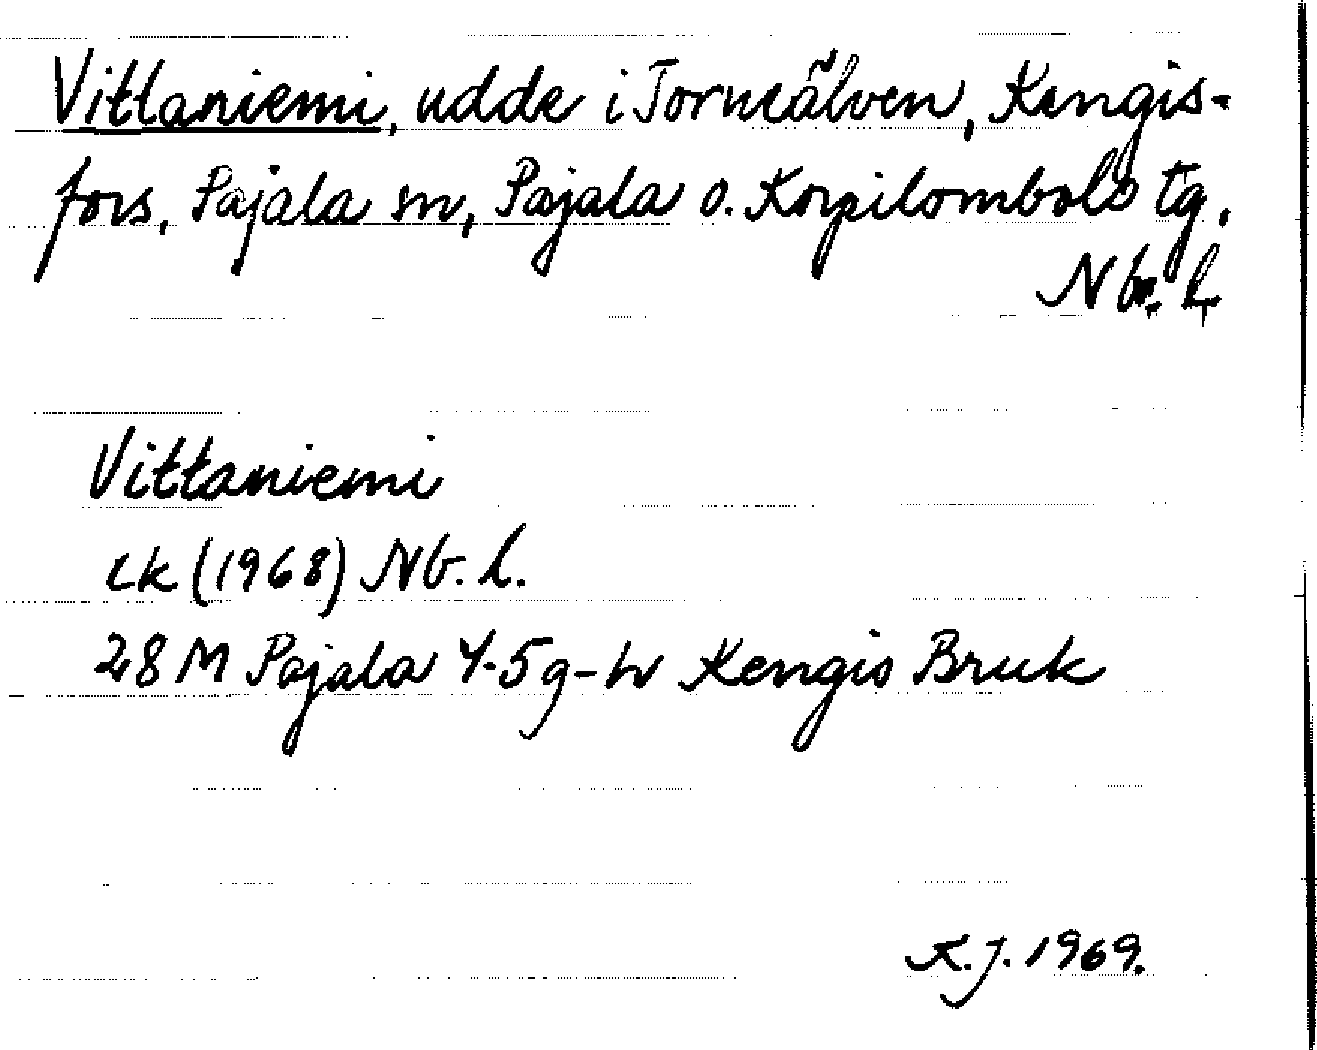 Vittaniemi, udde i Torneälven, Kengis-
fors, Pajala sn, Pajala o. Korpilombolo tg,
Nb. l.
Vittaniemi
ek (1968) Nb. l.
28 M Pajala 4-5 g-h Kengis Bruk
K.J. 1969.